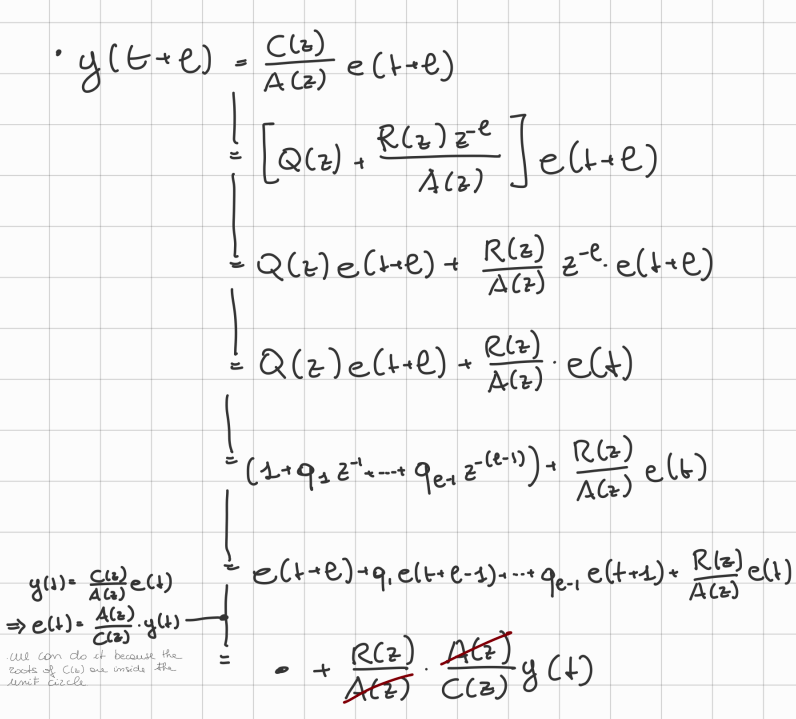 · y(t+ℓ) = C(z)/A(z) e(t+ℓ)
= [Q(z) + R(z) z^-ℓ / A(z)] e(t+ℓ)
= Q(z) e(t+ℓ) + R(z)/A(z) z^-ℓ · e(t+ℓ)
= Q(z) e(t+ℓ) + R(z)/A(z) · e(t)
= (1+q_1 z^-1 + ... + q_ℓ-1 z^-(ℓ-1)) + R(z)/A(z) e(t)
= e(t+ℓ) + q_1 e(t+ℓ-1) + ... + q_ℓ-1 e(t+1) + R(z)/A(z) e(t)
y(t) = C(z)/A(z) e(t)
⇒ e(t) = A(z)/C(z) · y(t)
·we can do it because the
roots of C(z) are inside the
unit circle
= • + R(z)/A(z) · A(z)/C(z) y(t)